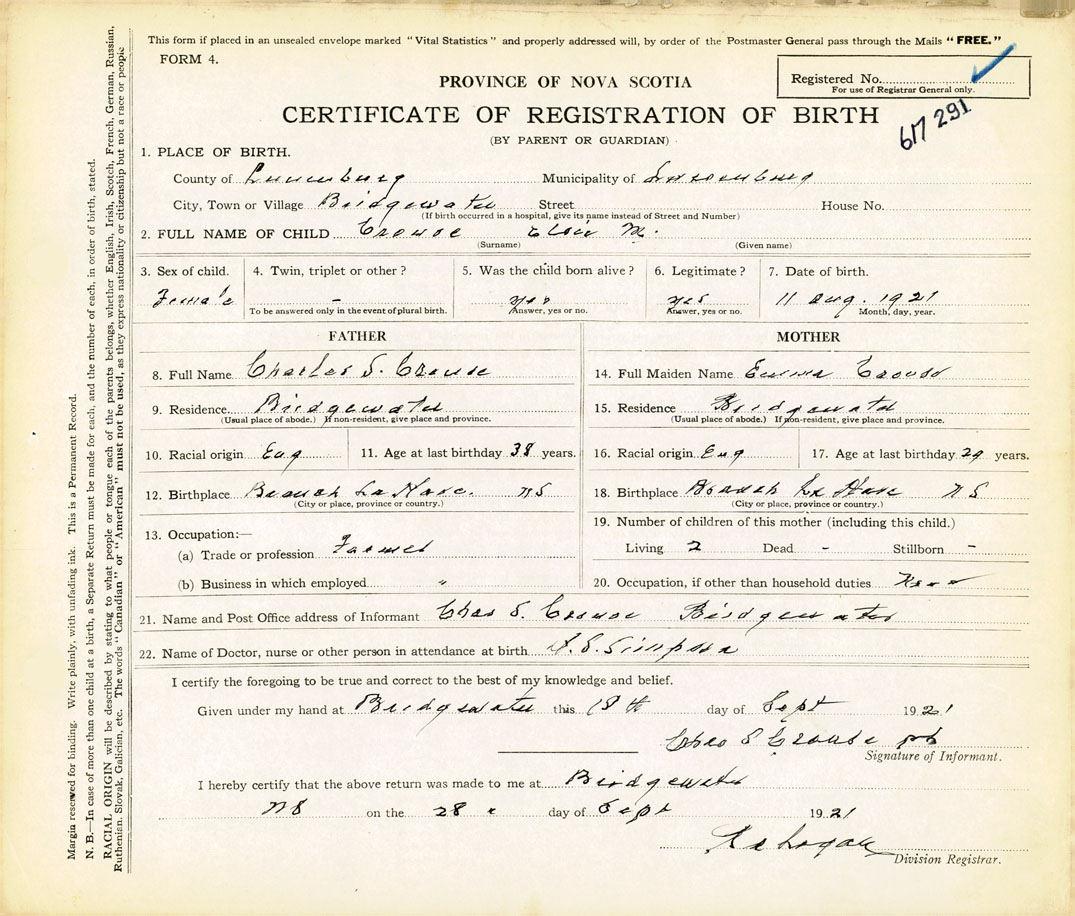 This form if placed in an unsealed envelope marked "Vital Statistics" and properly addressed will, by order of the Postmaster General pass through the Mails "FREE."
FORM 4.
Registered No.
For use of Registrar General only.
617 291
PROVINCE OF NOVA SCOTIA
CERTIFICATE OF REGISTRATION OF BIRTH
(BY PARENT OR GUARDIAN)
1. PLACE OF BIRTH.
County of Lunenburg Municipality of Lunenburg
City, Town or Village Bridgewater Street House No.
(If birth occurred in a hospital, give its name instead of Street and Number)
2. FULL NAME OF CHILD Crouse M.
(Surname) (Given name)
3. Sex of child. 4. Twin, triplet or other? 5. Was the child born alive? 6. Legitimate? 7. Date of birth.
Female - yes yes 11 Aug. 1921
To be answered only in the event of plural birth. Answer, yes or no. Answer, yes or no. Month, day, year.
FATHER MOTHER
8. Full Name Charles S. Crouse 14. Full Maiden Name Emma Crouse
9. Residence Bridgewater 15. Residence Bridgewater
(Usual place of abode.) If non-resident, give place and province. (Usual place of abode.) If non-resident, give place and province.
10. Racial origin Eng 11. Age at last birthday 38 years. 16. Racial origin Eng 17. Age at last birthday 29 years.
12. Birthplace Branch La Have. NS 18. Birthplace Branch La Have NS
(City or place, province or country.) (City or place, province or country.)
13. Occupation:—
(a) Trade or profession Farmer
(b) Business in which employed "
19. Number of children of this mother (including this child.)
Living 2 Dead - Stillborn -
20. Occupation, if other than household duties None
21. Name and Post Office address of Informant Chas S. Crouse Bridgewater
22. Name of Doctor, nurse or other person in attendance at birth Simpson
I certify the foregoing to be true and correct to the best of my knowledge and belief.
Given under my hand at Bridgewater this 13th day of Sept 1921
Chas S Crouse
Signature of Informant.
I hereby certify that the above return was made to me at Bridgewater
NS on the 28 day of Sept 1921
Logan
Division Registrar.
Margin reserved for binding. Write plainly, with unfading ink. This is a Permanent Record.
N. B.—In case of more than one child at a birth, a Separate Return must be made for each, and the number of each, in order of birth, stated.
RACIAL ORIGIN will be described by stating to what people or tongue each of the parents belongs, whether English, Irish, Scotch, French, German, Russian,
Ruthenian, Slovak, Galician, etc. The words "Canadian" or "American" must not be used, as they express nationality or citizenship but not a race or people